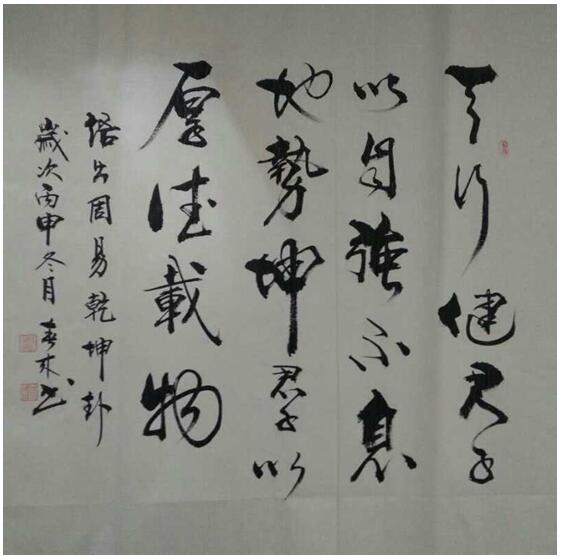 天行健君子
以自強不息
地勢坤君子以
厚德載物
語出周易乾坤卦
歲次丙申冬月春來書